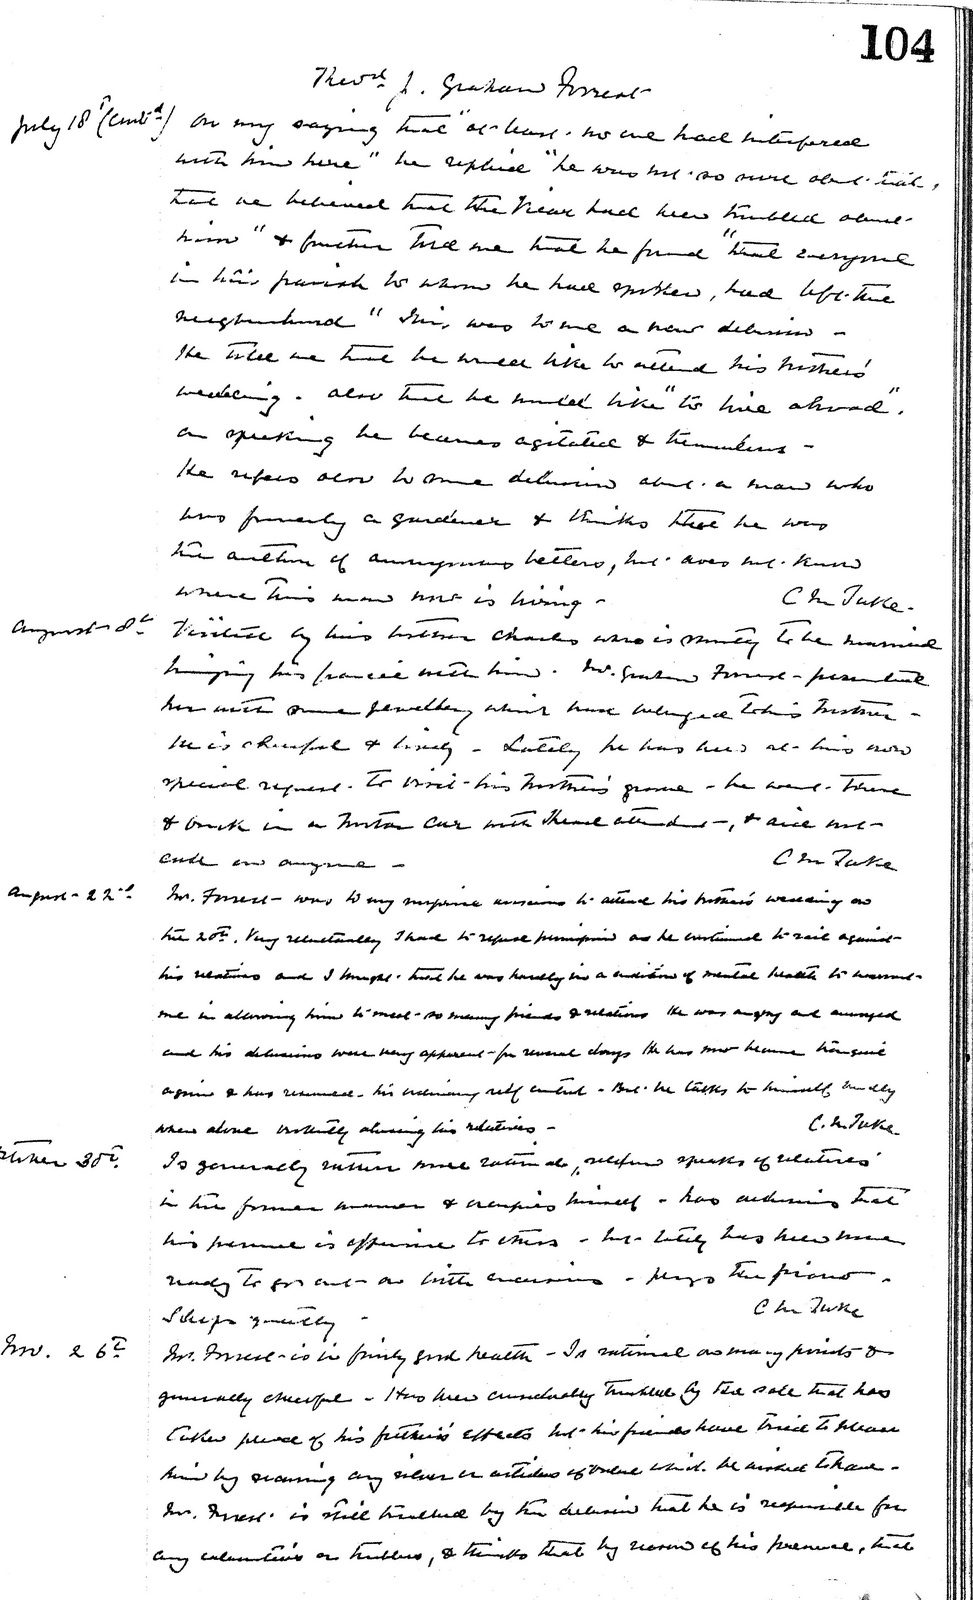 104
Theod J. Graham Forrest
July 18t (contd) on my saying that "at least no one had interfered
with him here" he replied "he was not so sure about that,
that he believed that the Vicar had been troubled about
him" & further told me that he found "that everyone
in his parish to whom he had spoken, had left the
neighbourhood" This was to me a new delusion -
He told me that he would like to attend his brother's
wedding. also that he would like "to live abroad".
on speaking he becomes agitated & tremulous -
He refers also to some delusion about a man who
was formerly a gardener & thinks that he was
the author of anonymous letters, but does not know
where this man now is living - C M Tuke.
August 8t Visited by his brother Charles who is shortly to be married
bringing his fiancée with him. Mr. Graham Forrest presented
her with some jewellery which had belonged to his Mother -
He is cheerful & lively - Lately he has been at his own
special request to visit his Mother's grave - he went there
& back in a Motor Car with Head attendant, & did not
call on anyone - C M Tuke
August 22nd Mr. Forrest was to my surprise anxious to attend his brother's wedding on
the 20th. Very reluctantly I had to refuse permission as he continued to rail against
his relatives and I thought that he was hardly in a condition of mental health to warrant
me in allowing him to meet so many friends & relations He was angry and annoyed
and his delusions were very apparent for several days He has now become tranquil
again & has resumed his ordinary self control - But he talks to himself loudly
when alone violently abusing his relatives - C. M. Tuke
October 30t. Is generally rather more rational, seldom speaks of relatives
in the former manner & occupies himself - has delusions that
his presence is offensive to others - but lately has been more
ready to go out on little excursions - plays the piano -
Sleeps quietly - C M Tuke
Nov. 26t Mr. Forrest is in fairly good health - Is rational on many points &
generally cheerful - Has been considerably troubled by the sale that has
taken place of his father's effects but his friends have tried to please
him by securing any silver or articles of value which he wished to have -
Mr. Forrest is still troubled by the delusion that he is responsible for
any calamities or troubles, & thinks that by reason of his presence, that